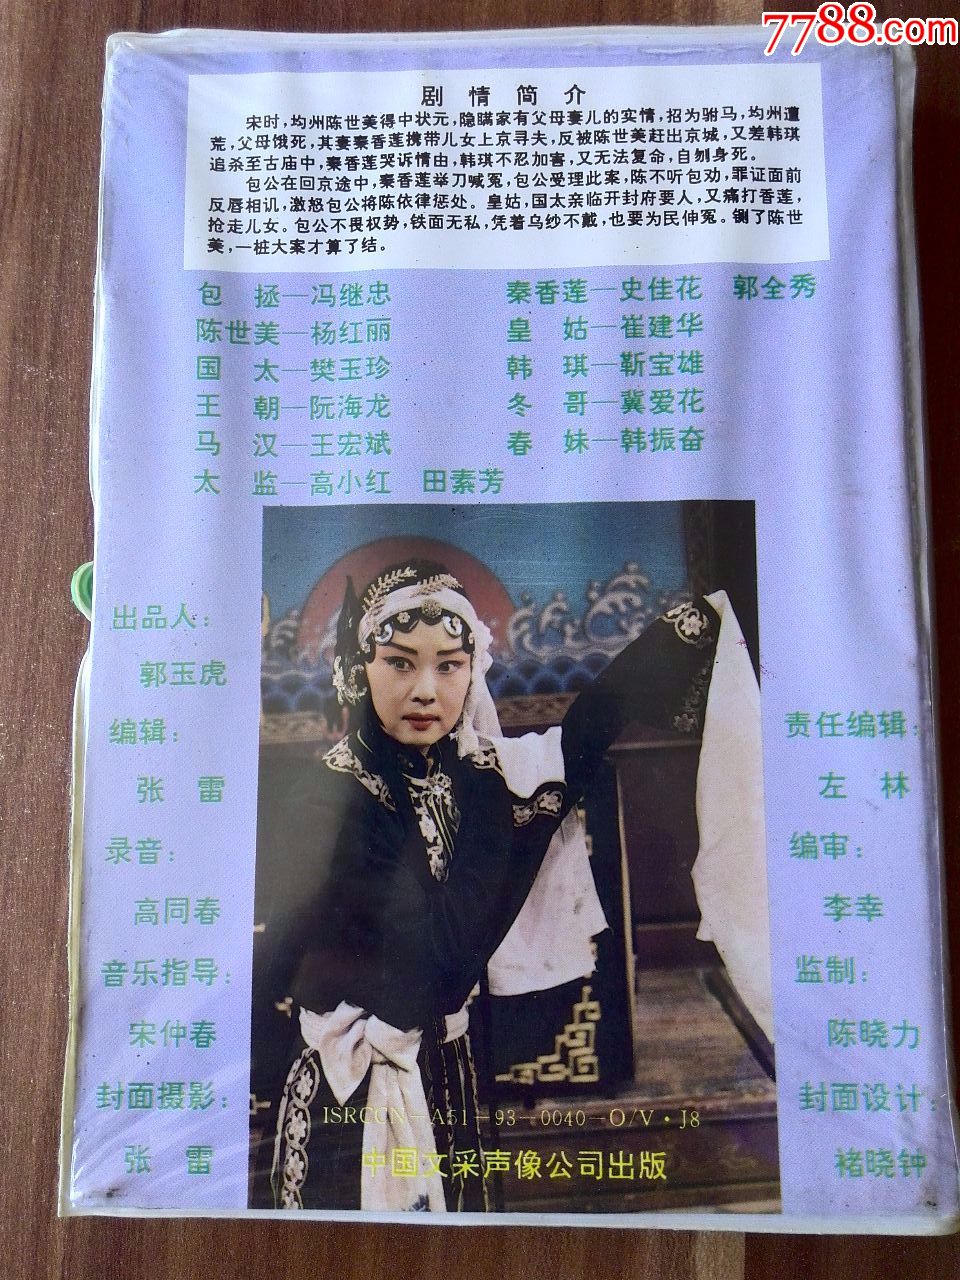 7788.com
剧情简介
宋时，均州陈世美得中状元，隐瞒家有父母妻儿的实情，招为驸马，均州遭
荒，父母饿死，其妻秦香莲携带儿女上京寻夫，反被陈世美赶出京城，又差韩琪
追杀至古庙中，秦香莲哭诉情由，韩琪不忍加害，又无法复命，自刎身死。
包公在回京途中，秦香莲举刀喊冤，包公受理此案，陈不听包劝，罪证面前
反唇相讥，激怒包公将陈依律惩处。皇姑，国太亲临开封府要人，又痛打香莲，
抢走儿女。包公不畏权势，铁面无私，凭着乌纱不戴，也要为民伸冤。铡了陈世
美，一桩大案才算了结。
包 拯—冯继忠 秦香莲—史佳花 郭全秀
陈世美—杨红丽 皇 姑—崔建华
国 太—樊玉珍 韩 琪—靳宝雄
王 朝—阮海龙 冬 哥—冀爱花
马 汉—王宏斌 春 妹—韩振奋
太 监—高小红 田素芳
出品人：
郭玉虎
编辑：
张 雷
录音：
高同春
音乐指导：
宋仲春
封面摄影：
张 雷
责任编辑：
左 林
编审：
李幸
监制：
陈晓力
封面设计：
褚晓钟
ISRCCN—A51—93—0040—O/V·J8
中国文采声像公司出版